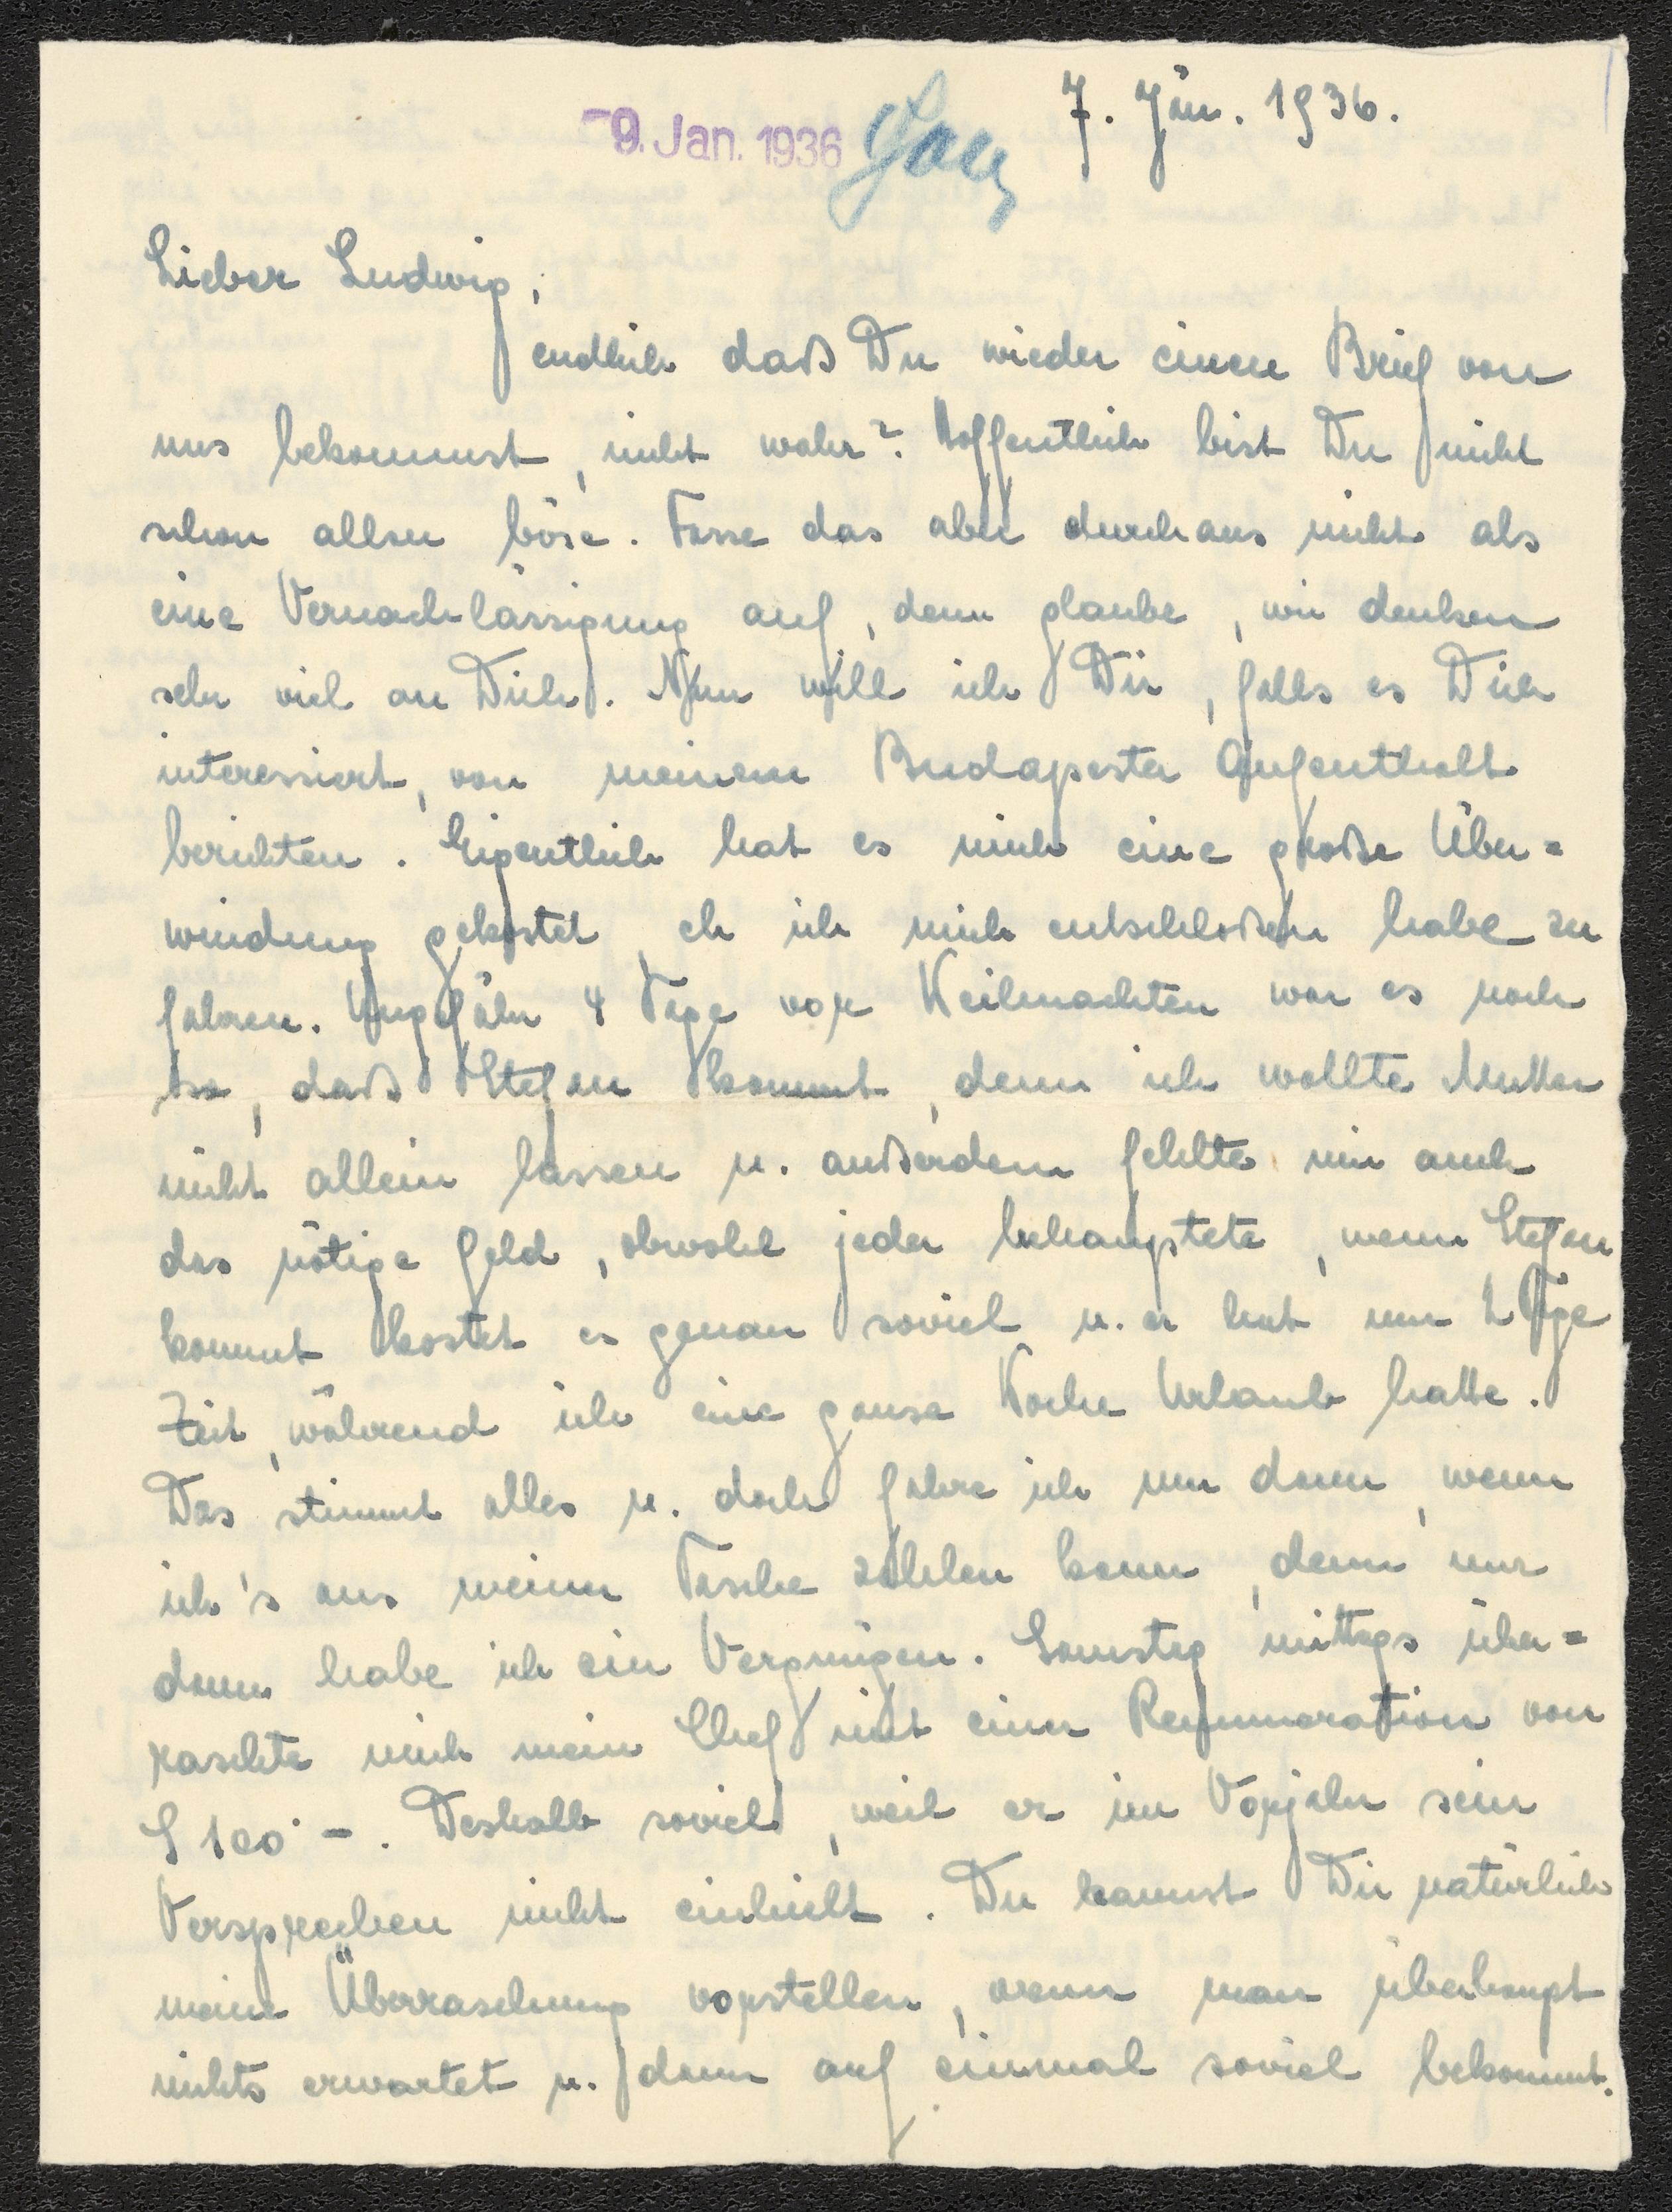 7. Jän. 1936.
-9. Jan. 1936
Lieber Ludwig,
endlich daß Du wieder einen Brief von
uns bekommst, nicht wahr? Hoffentlich bist Du nicht
schon allzu böse. Fasse das aber durchaus nicht als
eine Vernachlässigung auf, denn glaube, wir denken
sehr viel an Dich. Nun will ich Dir, falls es Dich
interessiert, von meinem Budapester Aufenthalt
berichten. Eigentlich hat es mich eine große Über=
windung gekostet, eh ich mich entschloßen habe zu
fahren. Ungefähr 4 Tage vor Weihnachten war es noch
so, daß Stefan kommt, denn ich wollte Mutter
nicht allein lassen u. außerdem fehlte mir auch
das nötige Geld, obwohl jeder behauptete, wenn Stefan
kommt kostet es genau soviel u. er hat nur 2 Tage
Zeit, während ich eine ganze Woche Urlaub hatte.
Das stimmt alles u. doch fahre ich nur dann, wenn
ich's aus meiner Tasche zahlen kann, denn nur
dann habe ich ein Vergnügen. Samstag mittags über=
raschte mich mein Chef mit einer Remuneration von
S 100·-. Deshalb soviel, weil er im Vorjahr sein
Versprechen nicht einhielt. Du kannst Dir natürlich
meine Überraschung vorstellen, wenn man überhaupt
nichts erwartet u. dann auf einmal soviel bekommt.